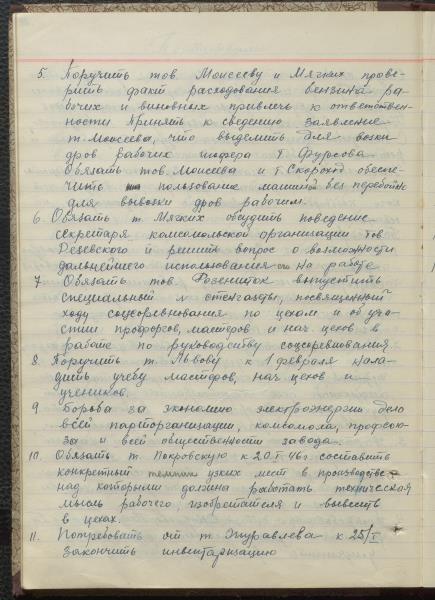 5. Поручить тов. Моисееву и Мягких прове-
рить факт расходования бензина ра-
бочих и виновных привлечь к ответствен-
ности Принять к сведению заявление
т. Моисеева, что выделить для возки
дров рабочих шофера т. Фурсова
Обязать тов. Моисеева и т. Скороход обеспе-
чить пользование машиной без перебойно
для вывозки дров рабочим.
6. Обязать т. Мягких обсудить поведение
секретаря комсомольской организации тов
Резевского и решить вопрос о возможности
дальнейшего использования его на работе
7. Обязать тов. выпустить
специальный № стенгазеты, посвященный
ходу соцсоревнования по цехам и об уча-
стии профоргов, мастеров и нач. цехов в
работе по руководству соцсоревнования
8. Поручить т. Львову к 1 февраля нала-
дить учебу мастеров, нач цехов и
учеников.
9 Борьба за экономию электроэнергии дело
всей парторганизации, комсомола, профсою-
за и всей общественности завода.
10. Обязать т. Покровскую к 20.I.46г. составить
конкретный темник узких мест в производстве
над которыми должна работать техническая
мысль рабочего, изобретателя и вывесить
в цехах.
11. Потребовать от т. Журавлева к 25/I
закончить инвентаризацию